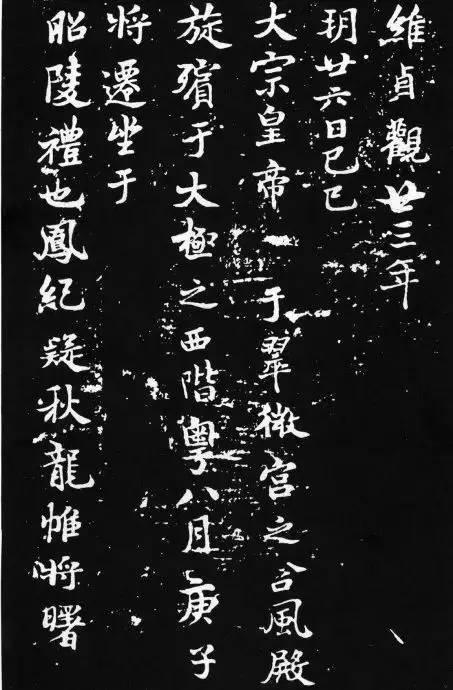 維貞觀廿三年
玥廿六日己巳
大宗皇帝于翠微宮之含風殿
旋殯于大極之西階粵八月庚子
將遷坐于
昭陵禮也鳳紀疑秋龍帷將曙